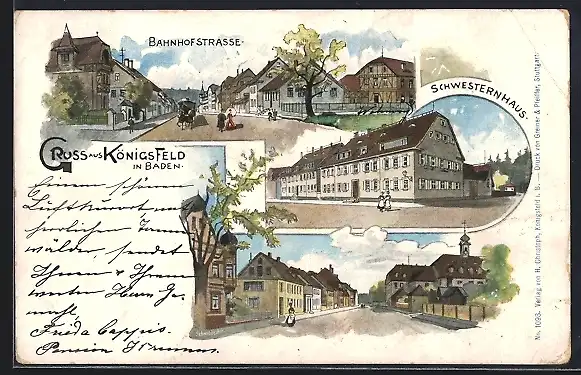 BAHNHOFSTRASSE.
SCHWESTERNHAUS.
GRUSS AUS KÖNIGSFELD
IN BADEN.
Einen schönen
Luftkurort mit
herrlichen Tannen
wäldern, sendet
Ihnen & Ihrem
werten Herrn Ge
mahl,
Frida
Pension
No. 1093. Verlag von H. Christoph, Königsfeld i. B. — Druck von Greiner & Pfeiffer, Stuttgart.